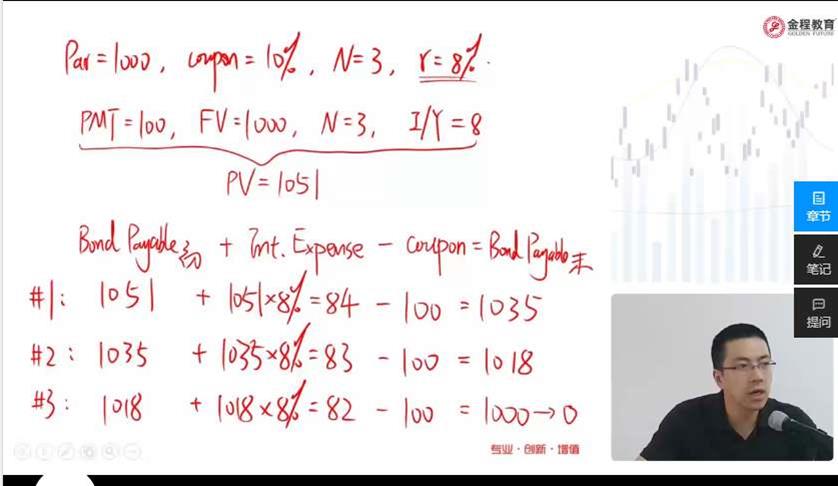 金程教育
GOLDEN FUTURE
Par=1000, coupon=10%, N=3, r=8%.
PMT=100, FV=1000, N=3, I/Y=8
PV=1051
Bond Payable初 + Int. Expense - coupon = Bond Payable末
#1: 1051 + 1051×8%=84 - 100 = 1035
#2: 1035 + 1035×8%=83 - 100 = 1018
#3: 1018 + 1018×8%=82 - 100 = 1000→0
专业·创新·增值
章节
笔记
提问